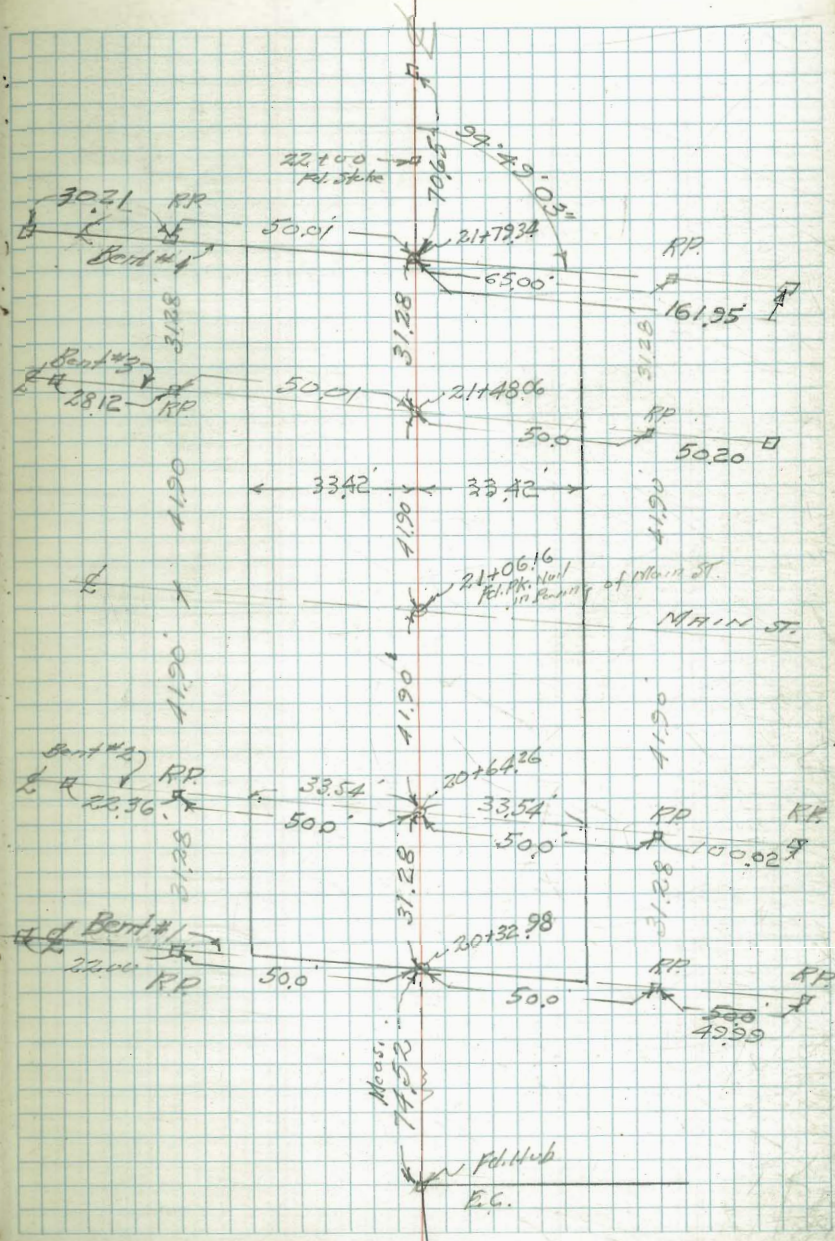 ℄
94°49'03"
22+00
Fd. Stake
70.65
30.21
RP.
50.01'
21+79.34
RP.
℄
Bent #4
65.00'
161.95'
31.28'
31.28
31.28'
Bent #3
℄
28.12
RP.
50.01
21+48.06
RP.
50.0
50.20
33.42'
33.42'
41.90
41.90'
41.90'
21+06.16
Fd. P.K. Nail
in Paving of Main ST.
℄
MAIN ST.
41.90'
41.90'
41.90'
Bent #2
℄
22.36'
RP.
33.54'
50.0'
20+64.26
33.54'
50.0'
RP
100.02
RP.
31.28'
31.28
31.28
℄ Bent #1
22.00
RP.
50.0'
20+32.98
50.0
RP.
RP.
50.0'
49.99
Meas.
74.52'
Fd. Hub
E.C.